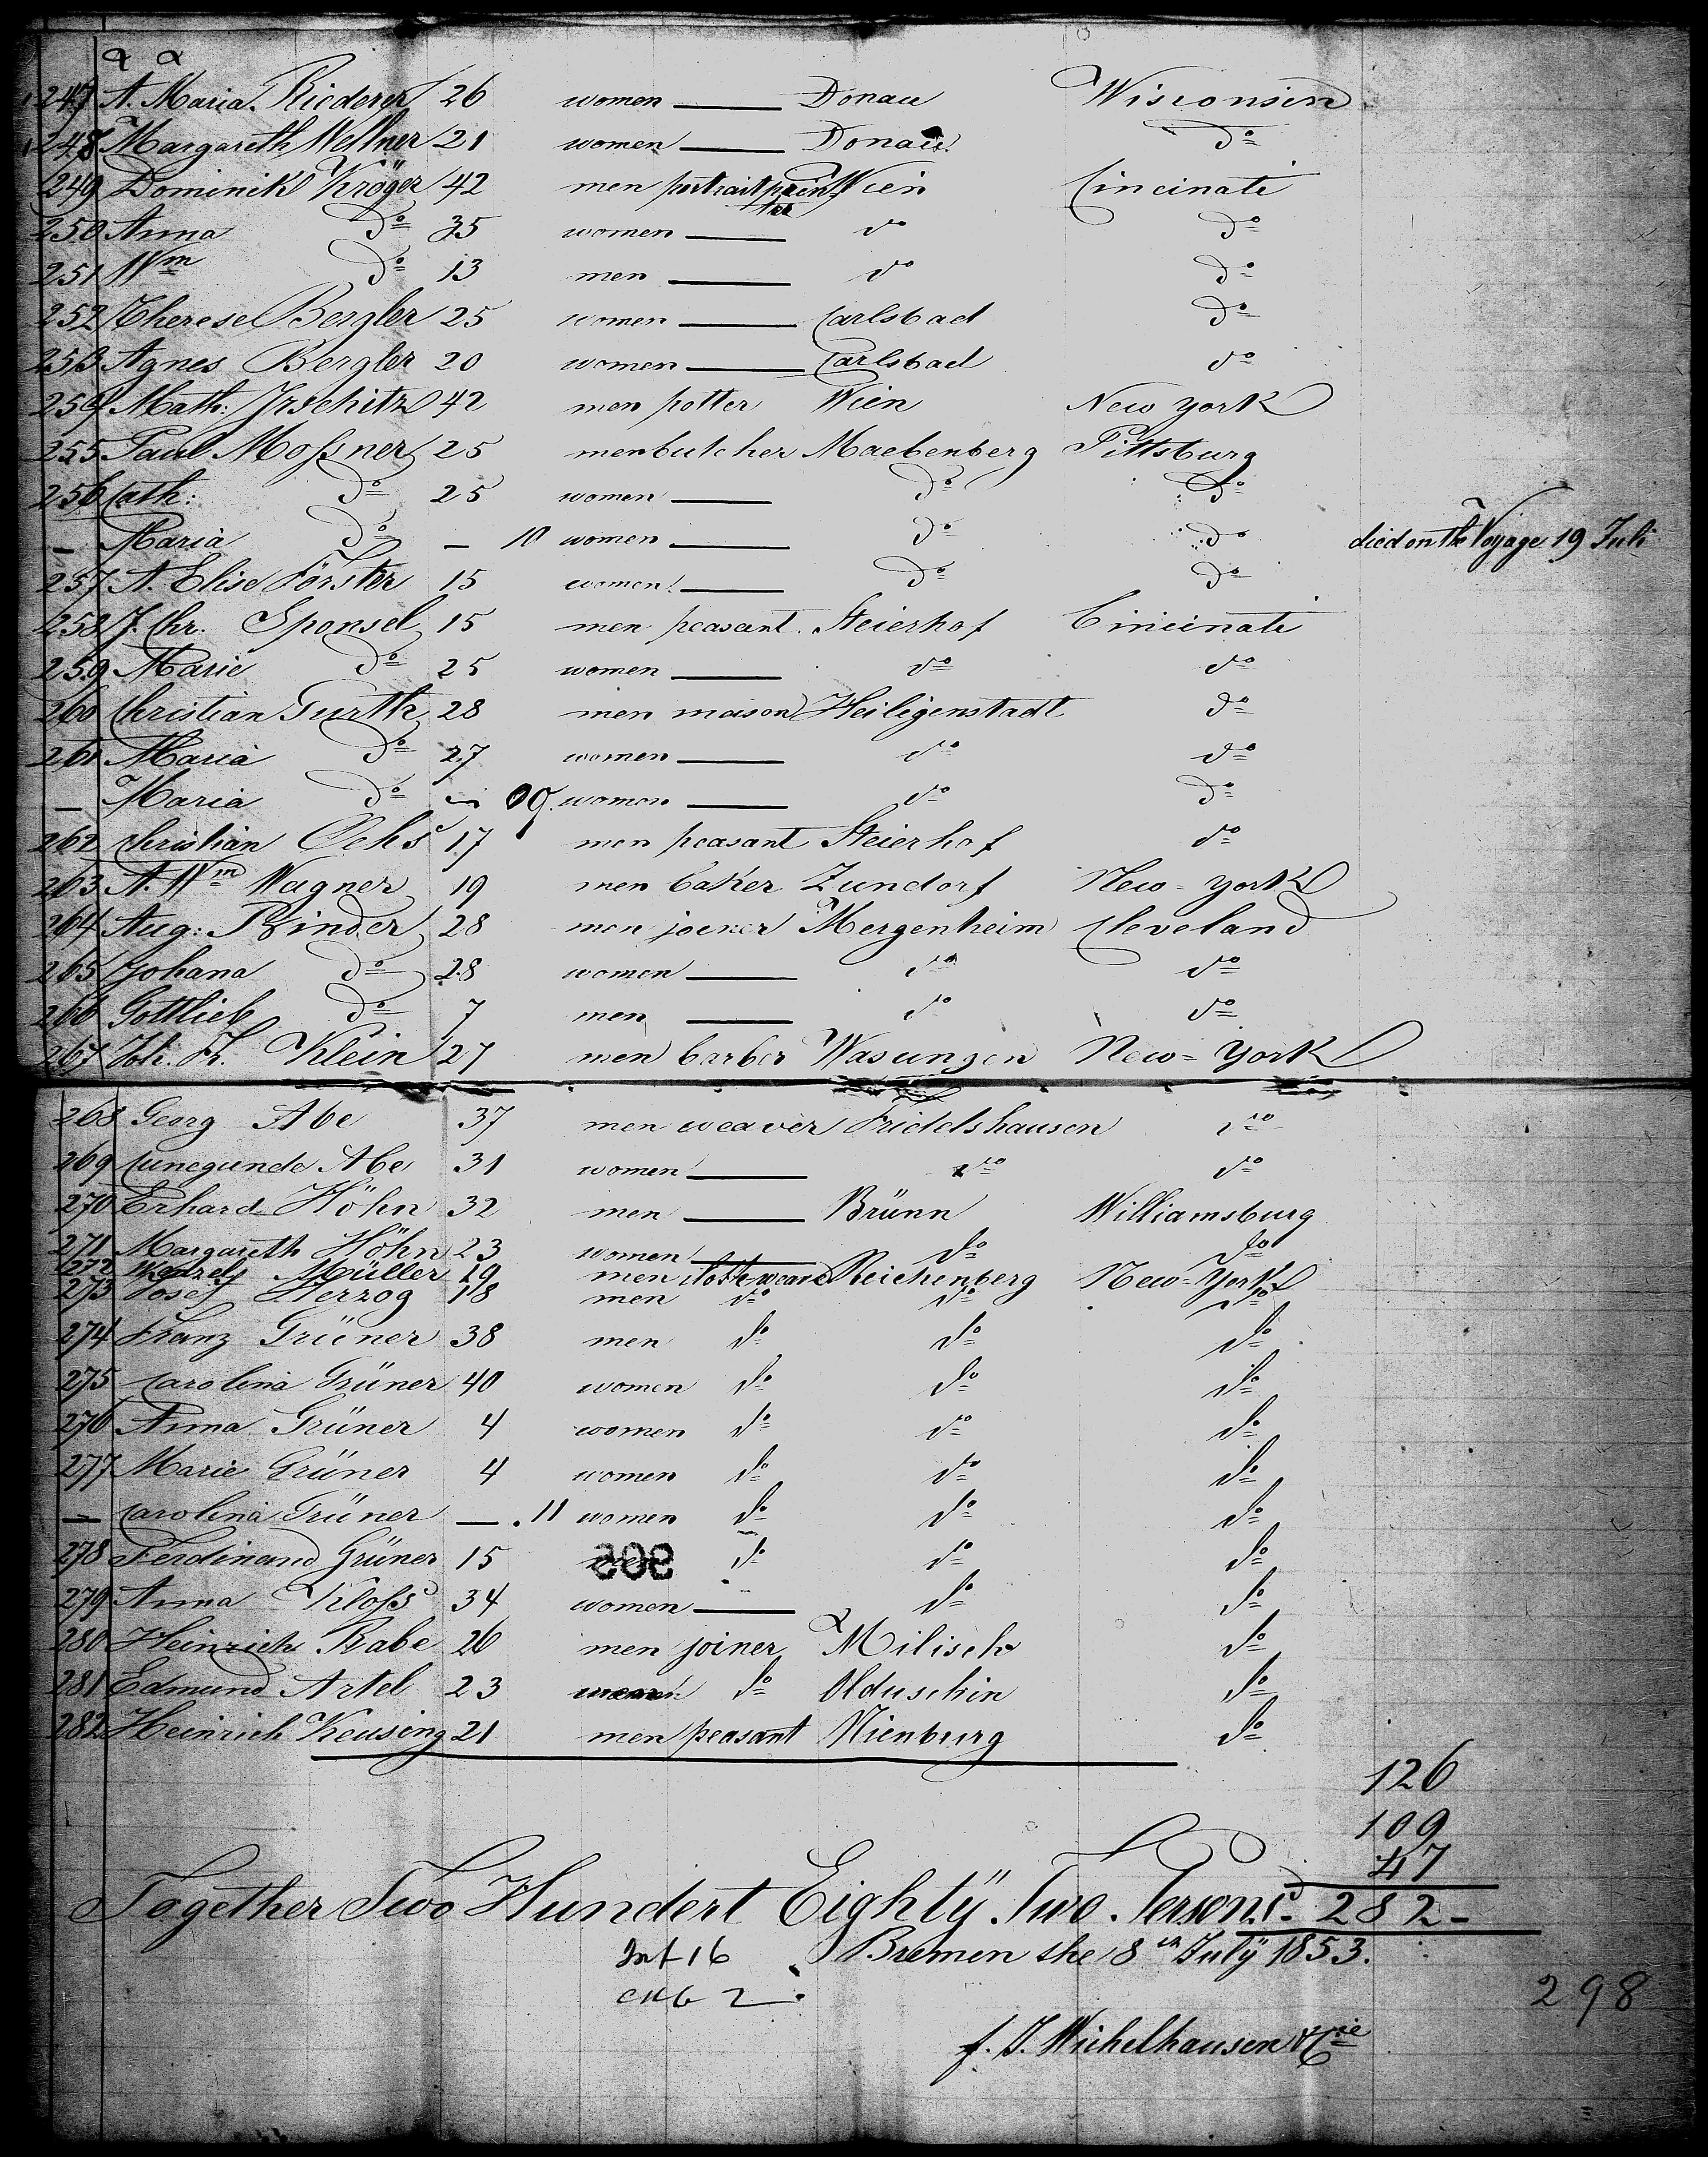 247 A. Maria Riederer 26 women — Donau Wisconsin
248 Margareth Wellner 21 women — Donau do
249 Dominik Kröger 42 men portrait painter Wien Cincinati
250 Anna do 35 women — do do
251 Wm do 13 men — do do
252 Therese Bergler 25 women — Carlsbad do
253 Agnes Bergler 20 women — Carlsbad do
254 Math: Jrschitz 42 men potter Wien New York
255 Paul Moßner 25 men butcher Maebenberg Pittsburg
256 Cath: do 25 women — do do
— Maria do — 10 women — do do died on the Voyage 19 Juli
257 A. Elise Förster 15 women — do do
258 J. Chr. Sponsel 15 men peasant Steierhof Cincinati
259 Marie do 25 women — do do
260 Christian Gurth 28 men mason Heiligenstadt do
261 Maria do 27 women — do do
— Maria do — 9 women — do do
262 Christian Ochs 17 men peasant Steierhof do
263 A. Wm Wagner 19 men baker Zundorf New-York
264 Aug: Binder 28 men joener Mergenheim Cleveland
265 Johana do 28 women — do do
266 Gottlieb do 7 men — do do
267 Joh. Fr. Klein 27 men barber Wasungen New-York
268 Georg Abe 37 men weaver Fridelshausen do
269 Cunegunde Abe 31 women — do do
270 Erhard Höhn 32 men — Brünn Williamsburg
271 Margareth Höhn 23 women — do do
272 Wenzely Müller 19 men cloth weav Reichenberg New-York
273 Josef Herzog 18 men do do do
274 Franz Grüner 38 men do do do
275 Carolina Grüner 40 women do do do
276 Anna Grüner 4 women do do do
277 Marie Grüner 4 women do do do
— Carolina Grüner — 11 women do do do
278 Ferdinand Grüner 15 men do do do
279 Anna Kloß 34 women — do do
280 Heinrich Rabe 26 men joiner Milisch do
281 Edmund Artel 23 do Olduschin do
282 Heinrich Keusing 21 men peasant Nienburg do
126
109
47
Together Two Hundert Eighty Two Persons. 282-
Inf 16 Bremen the 8th July 1853.
2 298
f. J. Wichelhausen & Cie